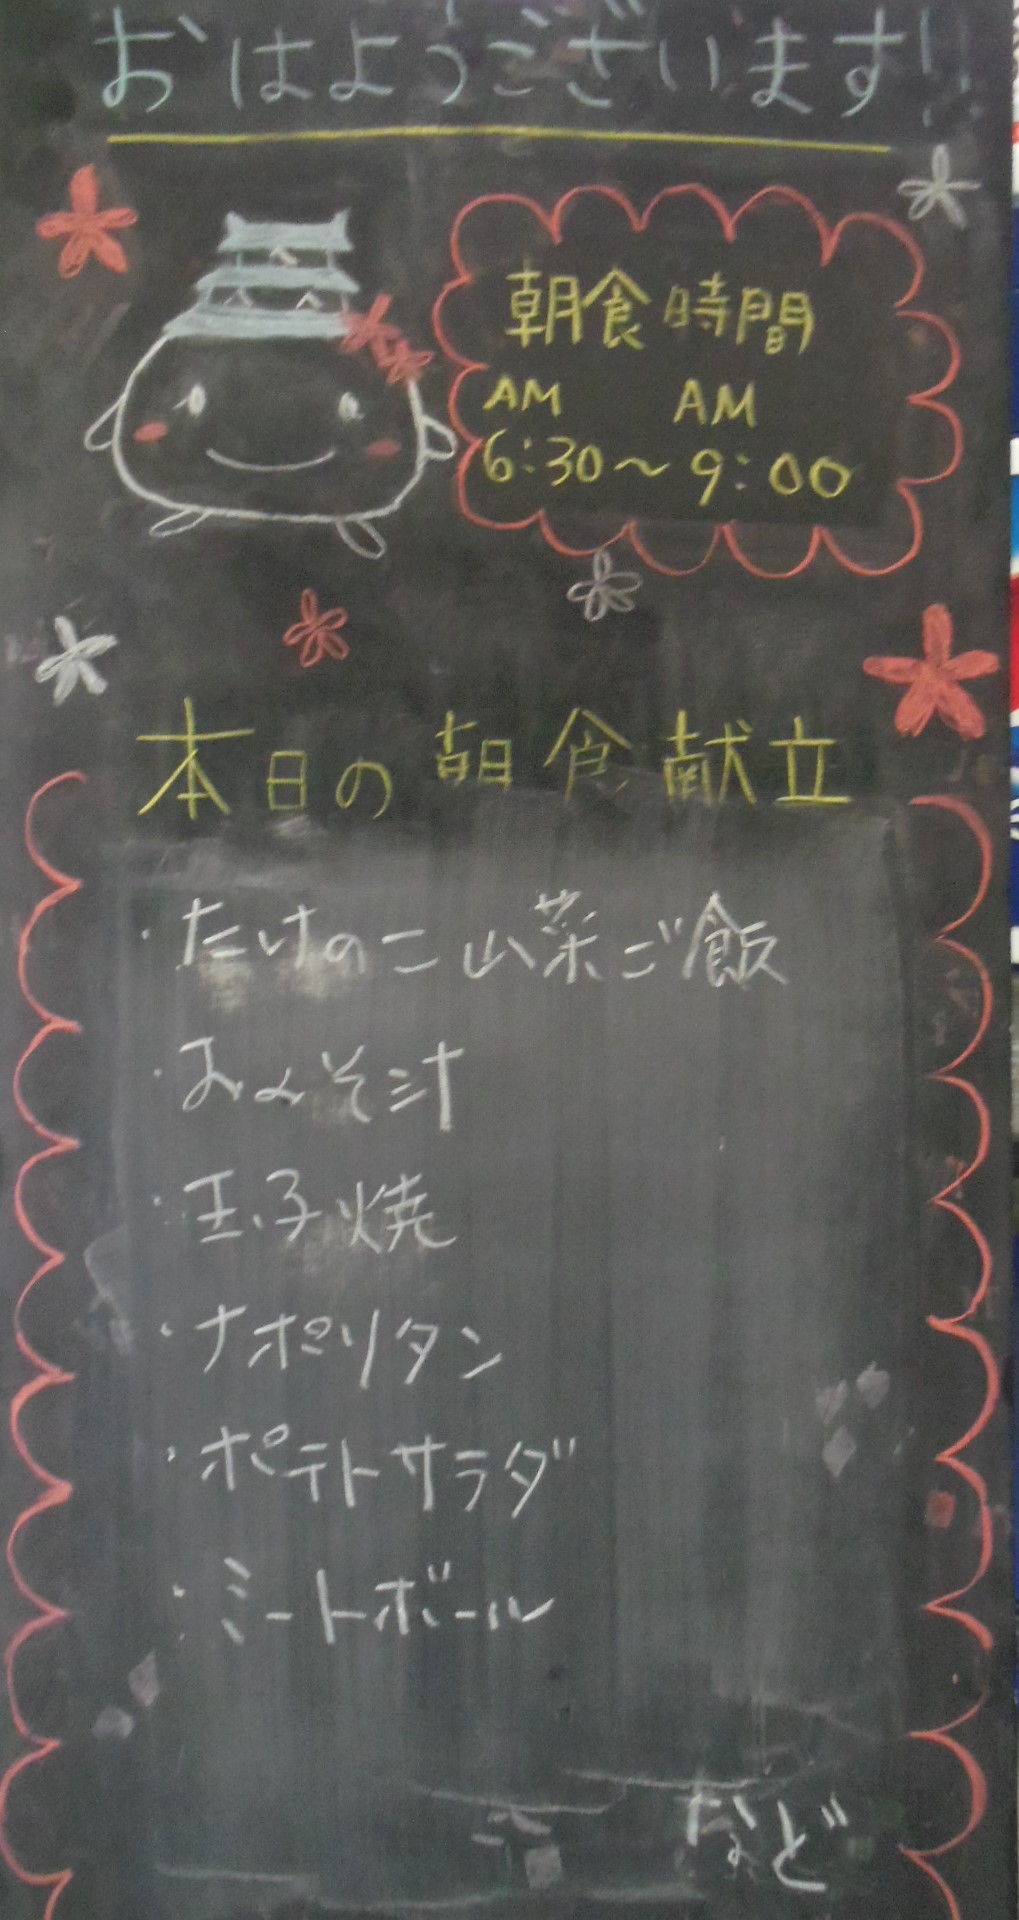 おはようございます!!
朝食時間
AM AM
6:30～9:00
本日の朝食献立
・たけのこ山菜ご飯
・おみそ汁
・玉子焼
・ナポリタン
・ポテトサラダ
・ミートボール
など